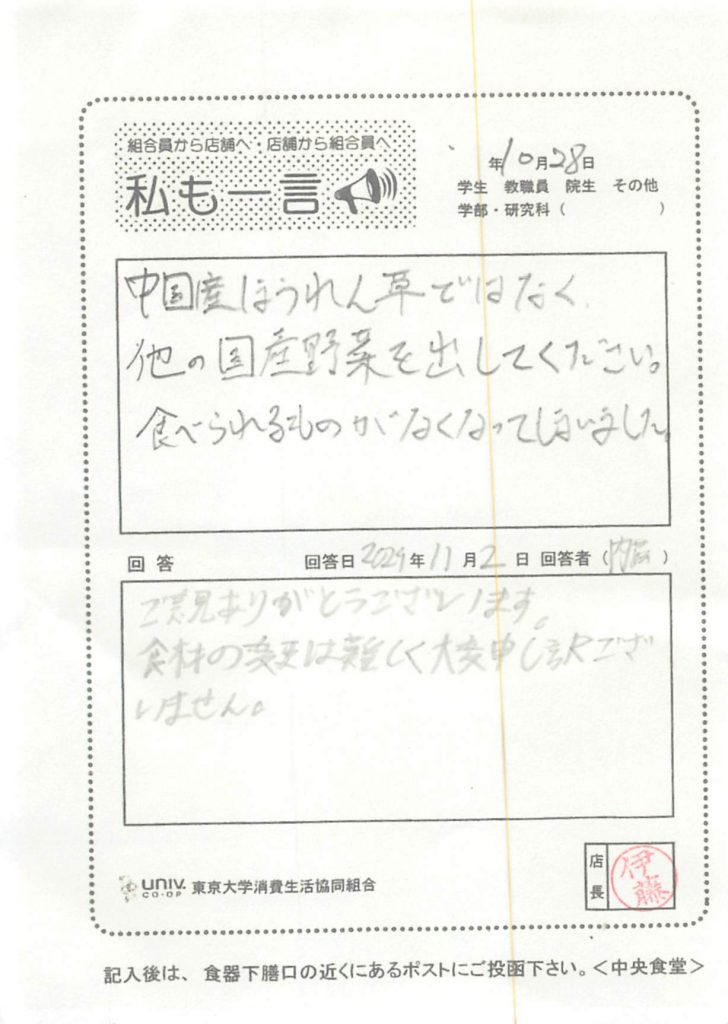 組合員から店舗へ・店舗から組合員へ
私も一言
年10月28日
学生 教職員 院生 その他
学部・研究科( )
中国産ほうれん草ではなく、
他の国産野菜を出してください。
食べられるものがなくなってしまいました。
回答 回答日 2024年11月2日 回答者(内藤)
ご意見ありがとうございます。
食材の変更は難しく大変申し訳ござ
いません。
UNIV. CO-OP 東京大学消費生活協同組合
店長 伊藤
記入後は、食器下膳口の近くにあるポストにご投函下さい。<中央食堂>